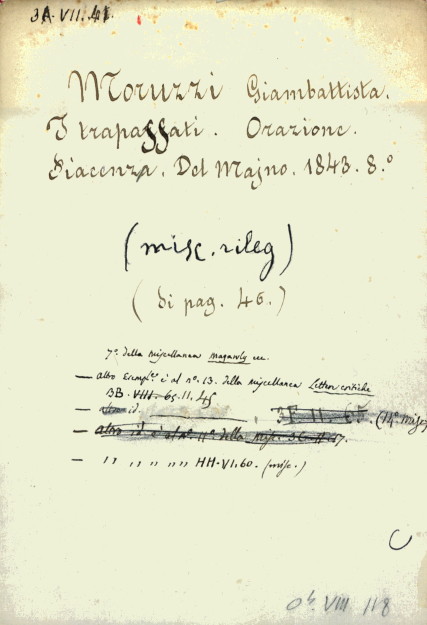 3A. VII. 41
Moruzzi Giambattista.
I trapassati. Orazione.
Piacenza. Del Majno. 1843. 8.º
(misc. rileg)
(di pag. 46.)
7º. della miscellanea
— altro esempl.ᵉ è al nº. 13. della miscellanea Lettere critiche
3B. VIII. 65. II. 45
— altro id. 3F. II. 65. (14ª misc)
— altro id è al nº 11º della misc. 3C. II. 67.
— " " " " " HH. VI. 60. (misc.)
VIII 118